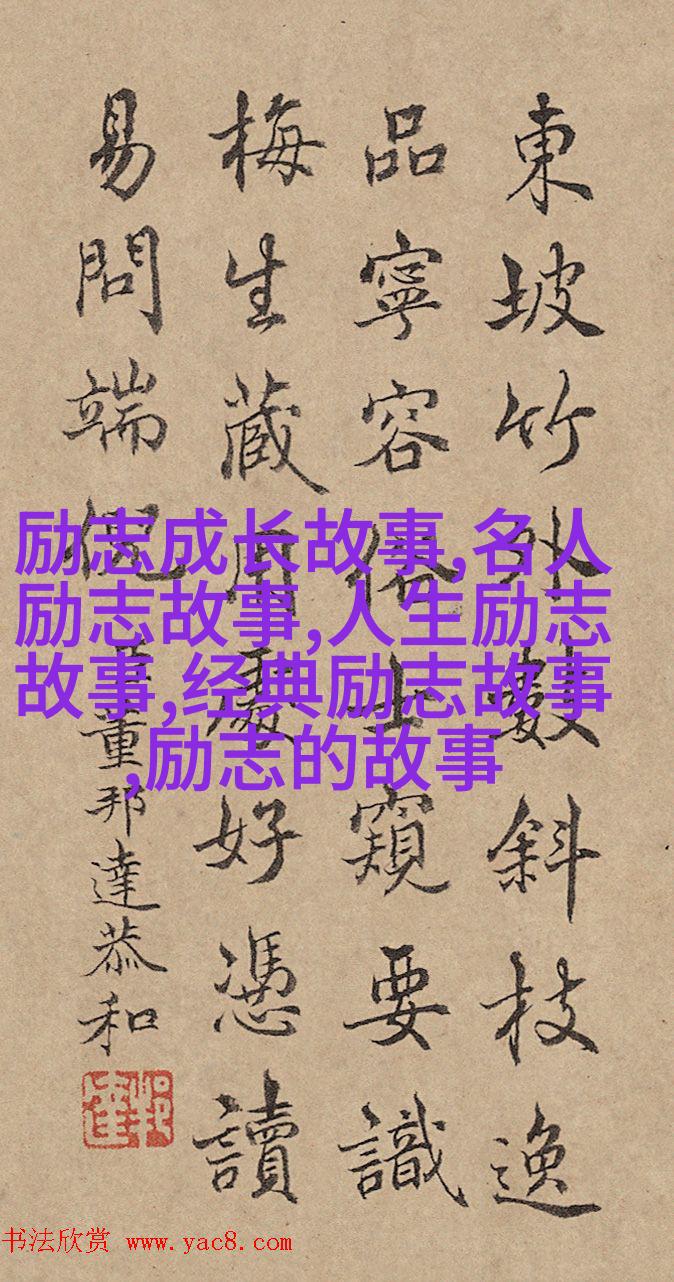 東坡竹外數斜枝逸
品寧容俗士窺要識
梅生藏用處好憑讀
易問端倪
臣董邦達恭和
励志成长故事,名人
励志故事,人生励志
故事,经典励志故事
,励志的故事
书法欣赏 www.yac8.com